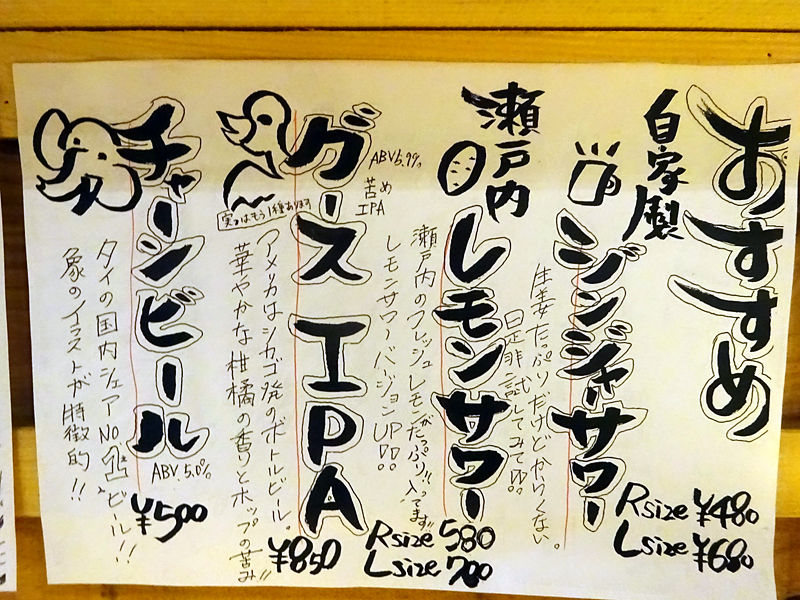 おすすめ
自家製
ジンジャサワー
生姜たっぷりだけどからくない。
是非試してみて!!
R size ¥480
L size ¥680
瀬戸内
レモンサワー
瀬戸内のフレッシュレモンがたっぷり!!入ってます!!
レモンサワーバージョンUP!!
R size 580
L size 700
グース IPA
ABV5.9%
苦め
IPA
実はもう1種あります
アメリカはシカゴ発のボトルビール。
華やかな柑橘の香りとホップの苦み!!
¥850
チャーンビール
ABV. 5.0%
タイの国内シェアNO.1ビール!!
象のイラストが特徴的!!
¥500